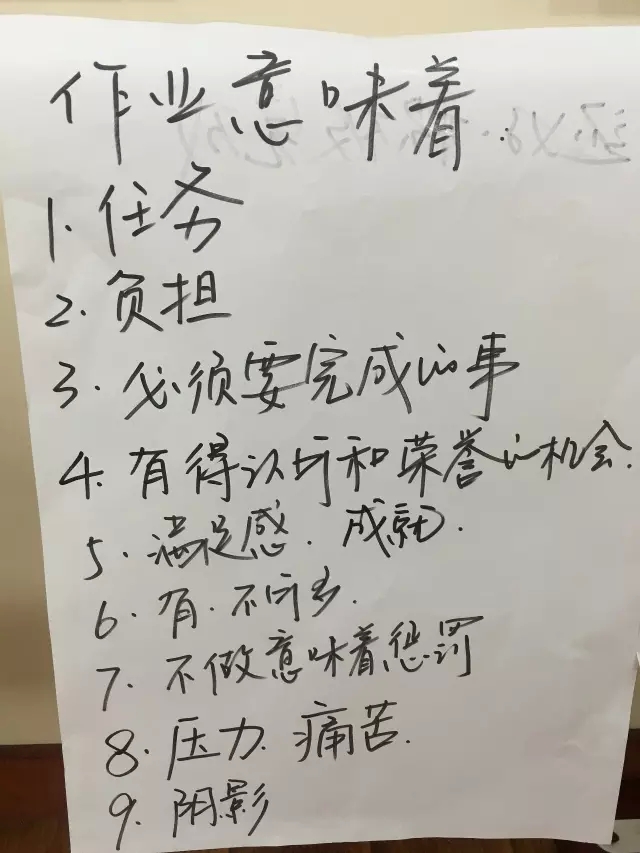 作业意味着.
1. 任务
2. 负担
3. 必须要完成的事
4. 有得认可和荣誉的机会.
5. 满足感. 成就.
6. 有. 不
7. 不做意味着惩罚
8. 压力. 痛苦.
9. 阴影